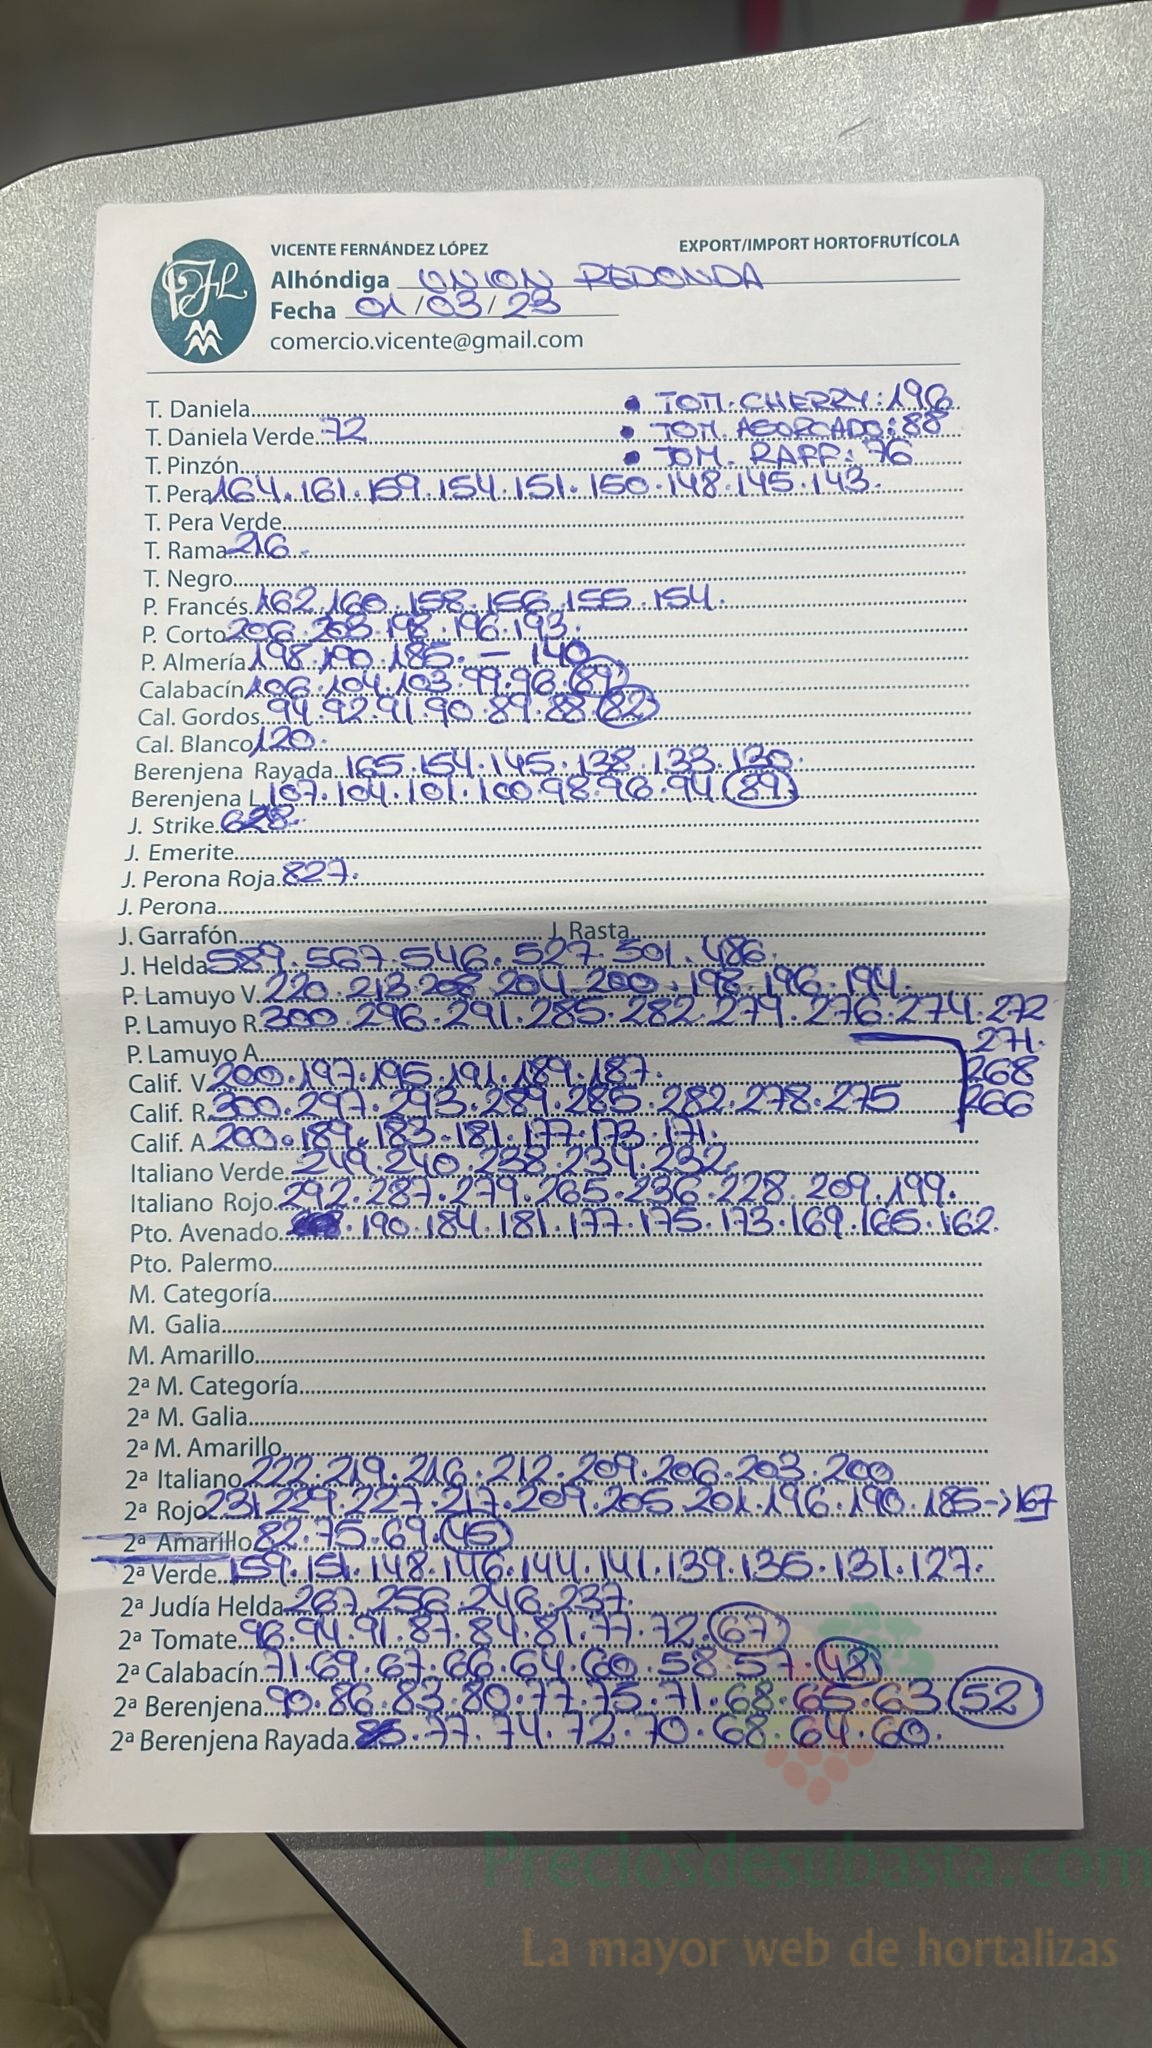 VICENTE FERNÁNDEZ LÓPEZ EXPORT/IMPORT HORTOFRUTÍCOLA
Alhóndiga UNION REDONDA
Fecha 01/03/23
comercio.vicente@gmail.com
T. Daniela • TOM. CHERRY: 196
T. Daniela Verde 72 • TOM. ASURCADO: 88
T. Pinzón • TOM. RAFF: 76
T. Pera 164.161.159.154.151.150.148.145.143.
T. Pera Verde
T. Rama 216.
T. Negro
P. Francés 162.160.158.156.155.154.
P. Corto 206.203.198.196.193.
P. Almería 198.190.185. — 140
Calabacín 106.104.103.99.96.89
Cal. Gordos 94.92.91.90.89.88.82
Cal. Blanco 120.
Berenjena Rayada 165.154.145.138.133.130.
Berenjena L. 107.104.101.100.98.96.94 89
J. Strike 628.
J. Emerite
J. Perona Roja 827.
J. Perona
J. Garrafón J. Rasta
J. Helda 589.567.546.527.501.486.
P. Lamuyo V. 220.213.208.204.200.198.196.194.
P. Lamuyo R. 300.296.291.285.282.279.276.274.272
271.
P. Lamuyo A.
268
Calif. V. 200.197.195.191.189.187.
266
Calif. R. 300.297.293.289.285.282.278.275
Calif. A. 200.189.183.181.177.173.171.
Italiano Verde 249.240.238.234.232.
Italiano Rojo 292.287.279.265.236.228.209.199.
Pto. Avenado 190.184.181.177.175.173.169.165.162.
Pto. Palermo
M. Categoría
M. Galia
M. Amarillo
2ª M. Categoría
2ª M. Galia
2ª M. Amarillo
2ª Italiano 222.219.216.212.209.206.203.200
2ª Rojo 231.229.227.217.209.205.201.196.190.185→167
2ª Amarillo 82.75.69.45
2ª Verde 159.151.148.146.144.141.139.135.131.127.
2ª Judía Helda 267.256.246.237.
2ª Tomate 96.94.91.87.84.81.77.72.67
2ª Calabacín 71.69.67.66.64.60.58.57.48
2ª Berenjena 90.86.83.80.77.75.71.68.65.63.52
2ª Berenjena Rayada 85.77.74.72.70.68.64.60.
Preciosdesubasta.com
La mayor web de hortalizas